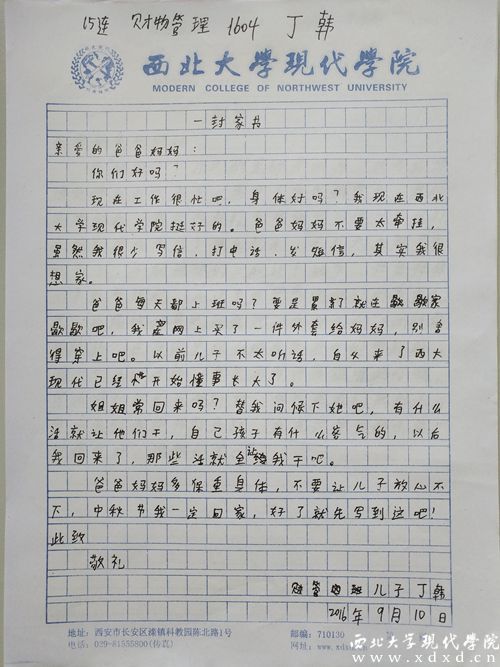 15连 财物管理 1604 丁韩
西北大學現代學院
MODERN COLLEGE OF NORTHWEST UNIVERSITY
一封家书
亲爱的爸爸妈妈:
你们好吗?
现在工作很忙吧,身体好吗?我现在西北
大学现代学院挺好的。爸爸妈妈不要太牵挂,
虽然我很少写信,打电话,发短信,其实我很
想家。
爸爸每天都上班吗?要是累了就在家歇
歇吧,我在网上买了一件外套给妈妈,别舍
得穿上吧。以前儿子不太听话,自从来了西大
现代已经开始懂事长大了。
姐姐常回来吗?替我问候下她吧,有什么
活就让他们干,自己孩子有什么客气的,以后
我回来了,那些活就全让给我干吧。
爸爸妈妈多保重身体,不要让儿子放心不
下,中秋节我一定回家,好了就先写到这吧!
此致
敬礼
财管四班 儿子 丁韩
2016年9月10日
地址:西安市长安区滦镇科教园陈北路1号
邮编:710130
电话:029-81555800(传真)
网址:www.xdxd
西北大学现代学院
www.xdxd.cn